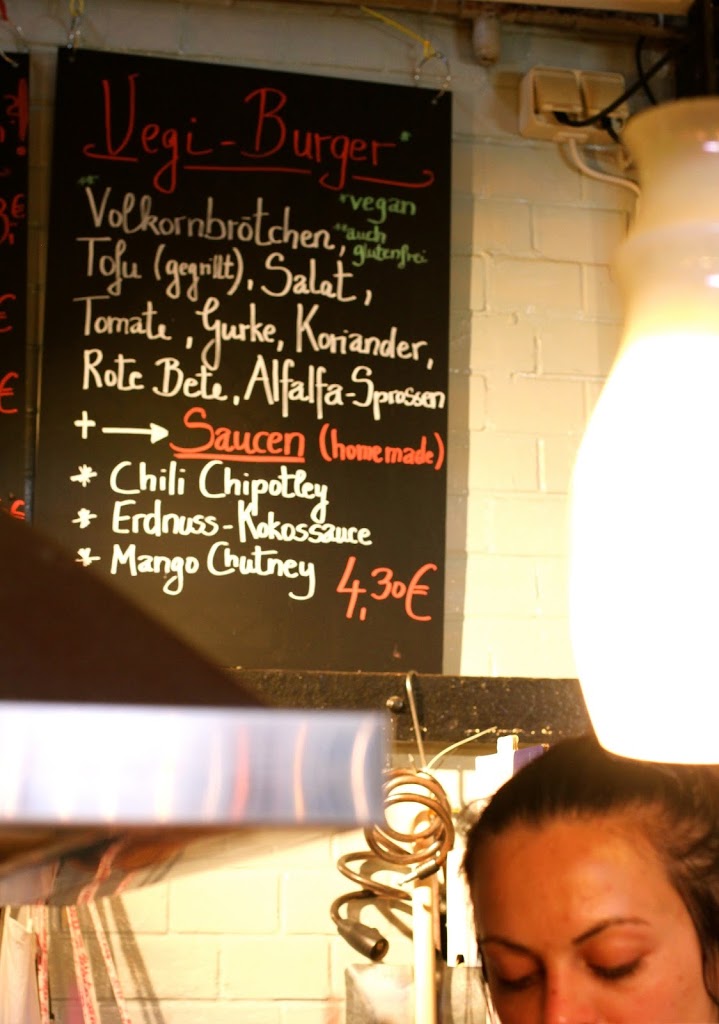 Vegi-Burger*
*Volkornbrötchen,
*vegan
**auch
glutenfrei
Tofu (gegrillt), Salat,
Tomate, Gurke, Koriander,
Rote Bete, Alfalfa-Sprossen
+ → Saucen (homemade)
* Chili Chipotley
* Erdnuss-Kokossauce
* Mango Chutney
4,30€
?!
€
€
€